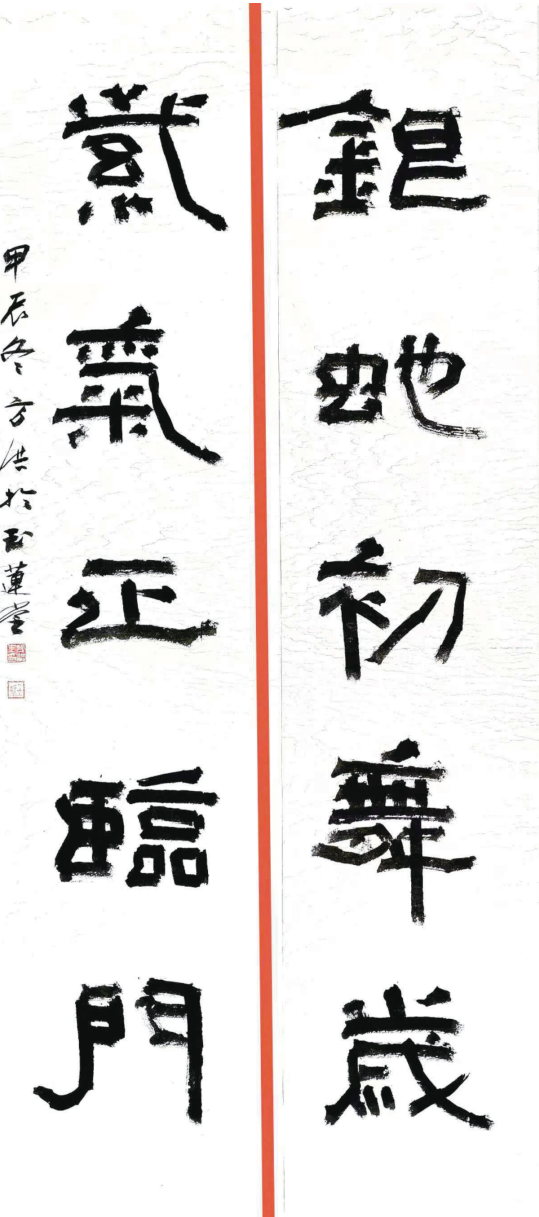 銀蛇初舞歲
紫氣正臨門
甲辰冬方洪於蓮堂